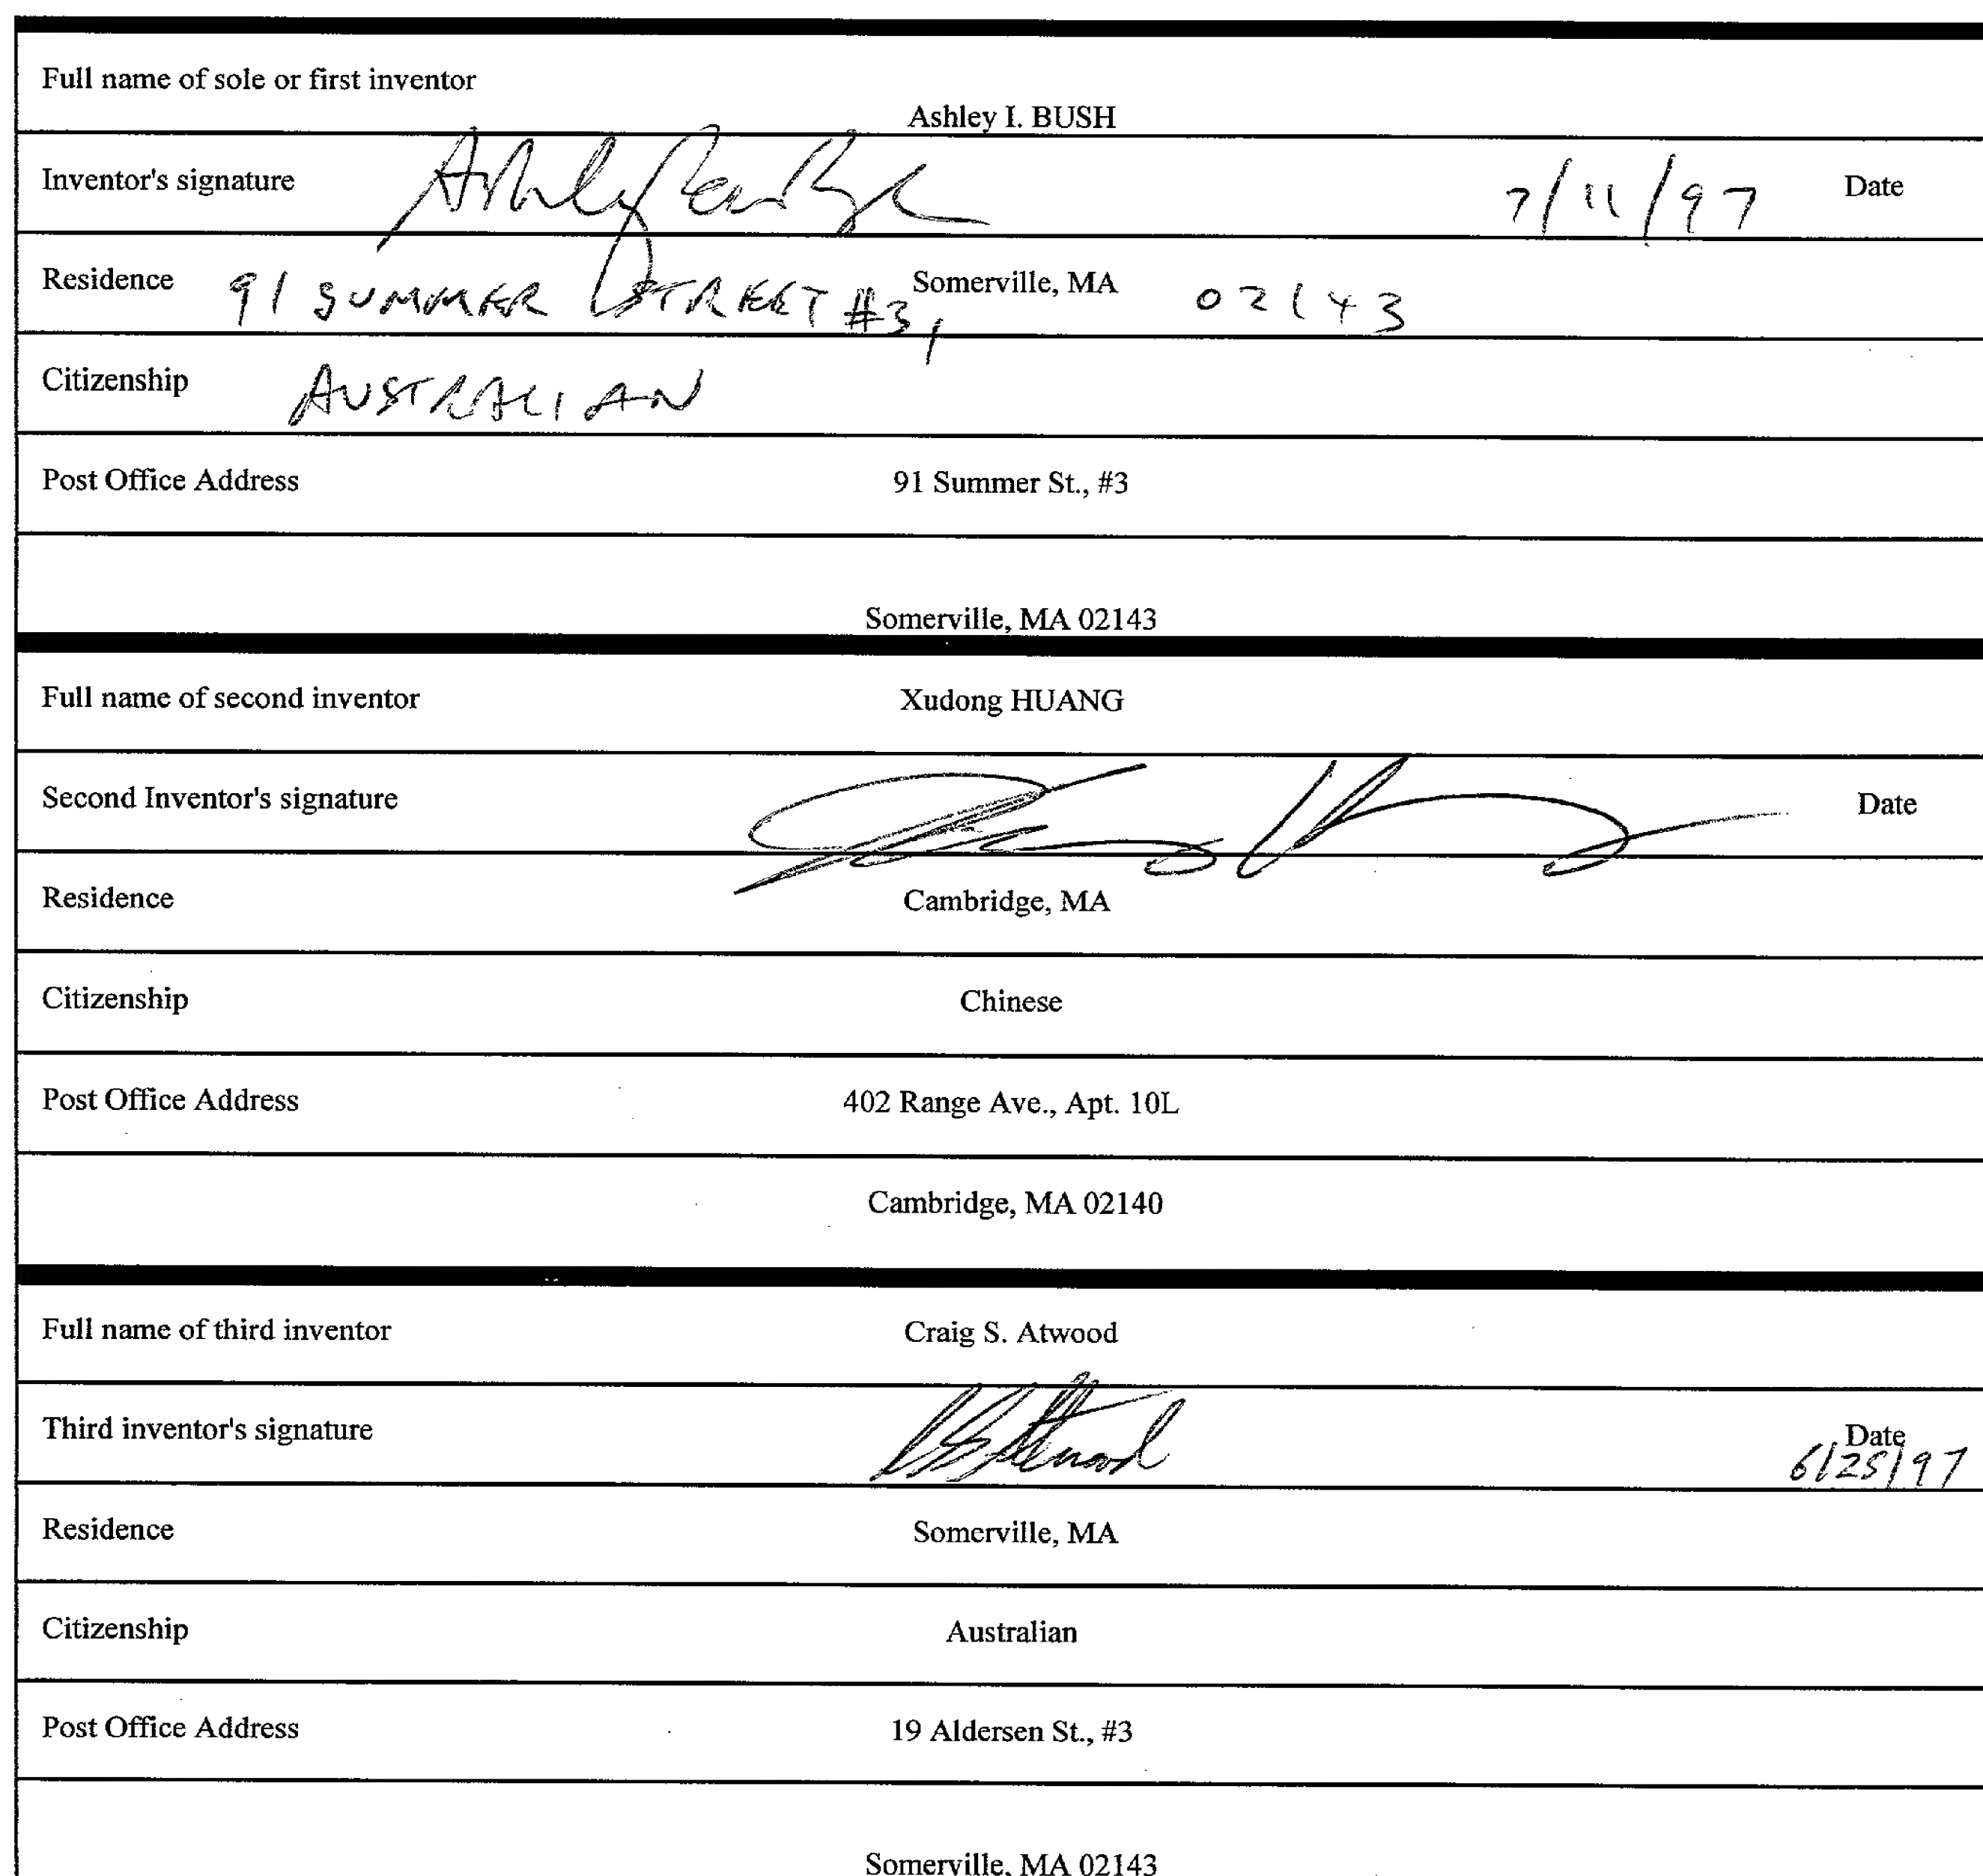 Full name of sole or first inventor
Ashley I. BUSH
Inventor's signature 7/11/97 Date
Residence 91 SUMMER STREET #3, Somerville, MA 02143
Citizenship AUSTRALIAN
Post Office Address 91 Summer St., #3
Somerville, MA 02143
Full name of second inventor Xudong HUANG
Second Inventor's signature Date
Residence Cambridge, MA
Citizenship Chinese
Post Office Address 402 Range Ave., Apt. 10L
Cambridge, MA 02140
Full name of third inventor Craig S. Atwood
Third inventor's signature Date
6/25/97
Residence Somerville, MA
Citizenship Australian
Post Office Address 19 Aldersen St., #3
Somerville, MA 02143